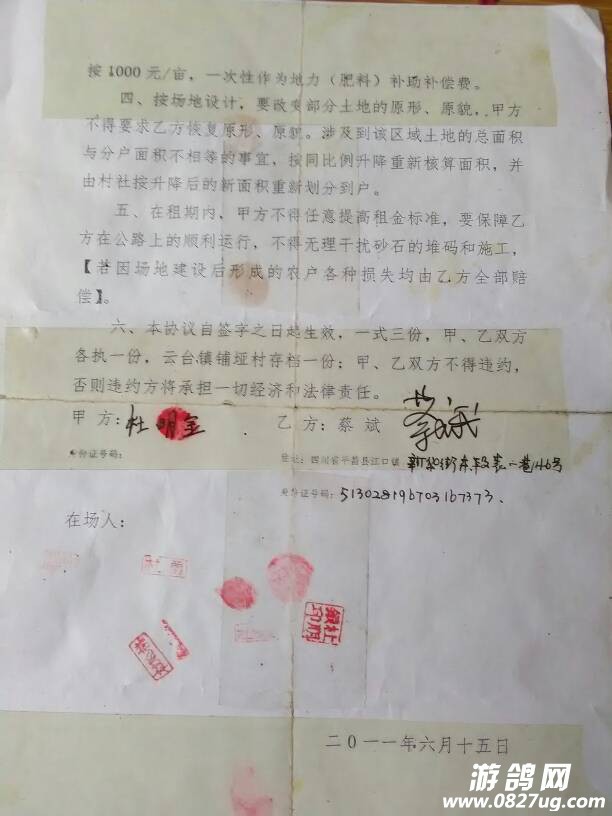 按 1000 元/亩，一次性作为地力（肥料）补助补偿费。
四、按场地设计，要改变部分土地的原形、原貌，甲方
不得要求乙方恢复原形、原貌。涉及到该区域土地的总面积
与分户面积不相等的事宜，按同比例升降重新核算面积，并
由村社按升降后的新面积重新划分到户。
五、在租期内、甲方不得任意提高租金标准，要保障乙
方在公路上的顺利运行，不得无理干扰砂石的堆码和施工，
【若因场地建设后形成的农户各种损失均由乙方全部赔
偿】。
六、本协议自签字之日起生效，一式三份，甲、乙双方
各执一份，云台镇铺垭村存档一份；甲、乙双方不得违约，
否则违约方将承担一切经济和法律责任。
甲 方：杜明金 乙 方：蔡 斌 蔡斌
身份证号码： 地址：四川省平昌县江口镇
身份证号码：513028196703167373.
在场人：
二〇一一年六月十五日
游鸽网
www.0827ug.com